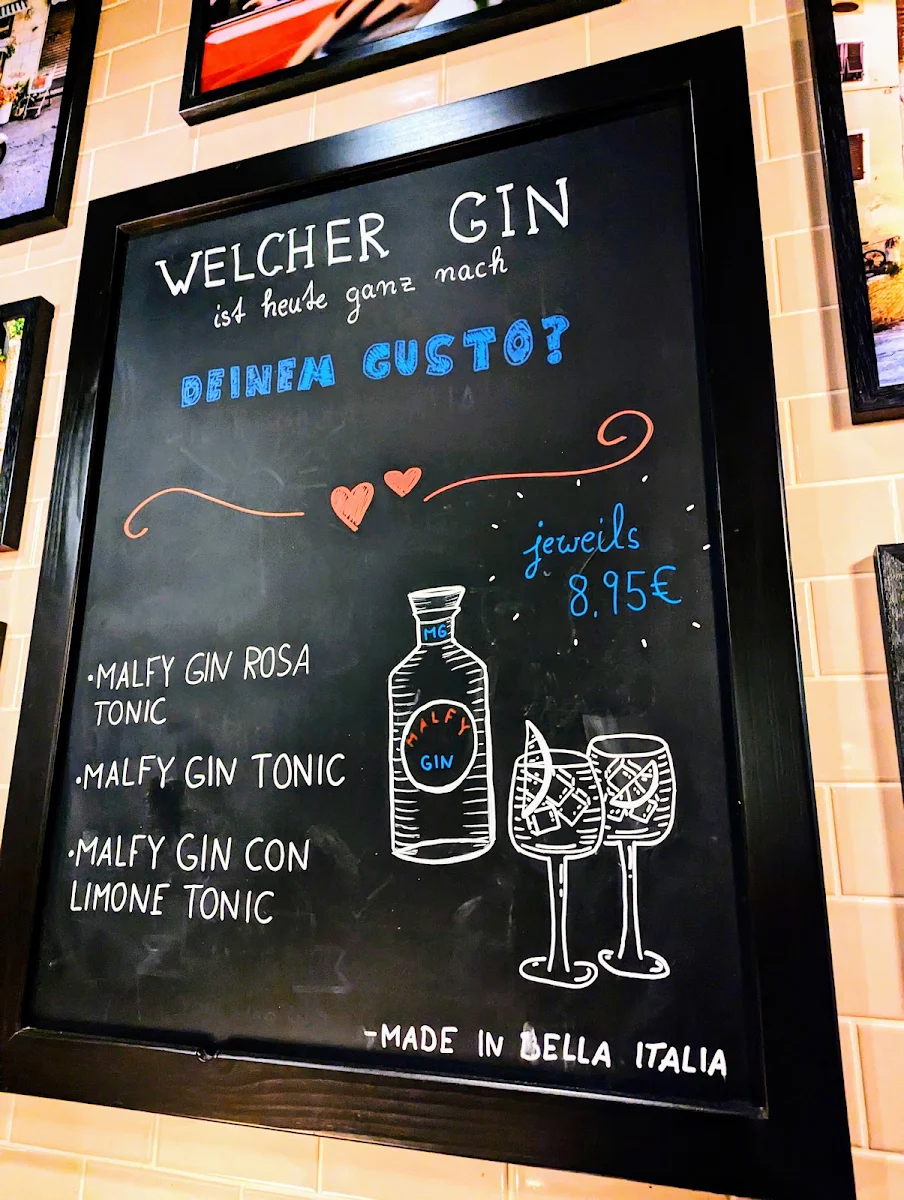 WELCHER GIN
ist heute ganz nach
DEINEM GUSTO?
jeweils
8,95€
·MALFY GIN ROSA
TONIC
·MALFY GIN TONIC
·MALFY GIN CON
LIMONE TONIC
MG
MALFY
GIN
-MADE IN BELLA ITALIA